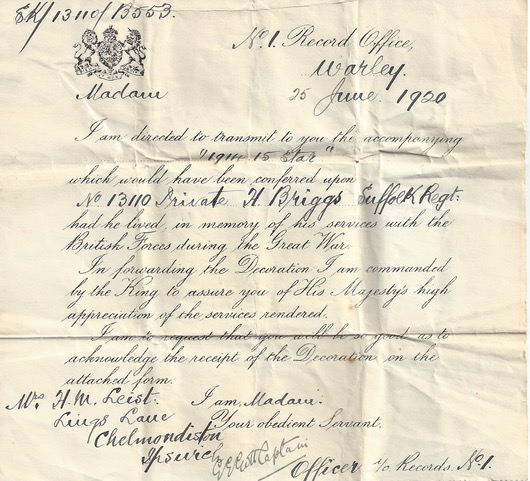 EK/13110/B553.
No. 1. Record Office,
Warley.
Madam
25 June. 1920
I am directed to transmit to you the accompanying
"1914-15 Star"
which would have been conferred upon
No 13110 Private H. Briggs Suffolk Regt:
had he lived, in memory of his services with the
British Forces during the Great War.
In forwarding the Decoration I am commanded
by the King to assure you of His Majesty's high
appreciation of the services rendered.
I am to request that you will be so good as to
acknowledge the receipt of the Decoration on the
attached form.
I am, Madam:
Your obedient Servant,
Captain
Officer i/c Records. No 1.
Mrs H. M. Leist.
Lings Lane
Chelmondiston
Ipswich